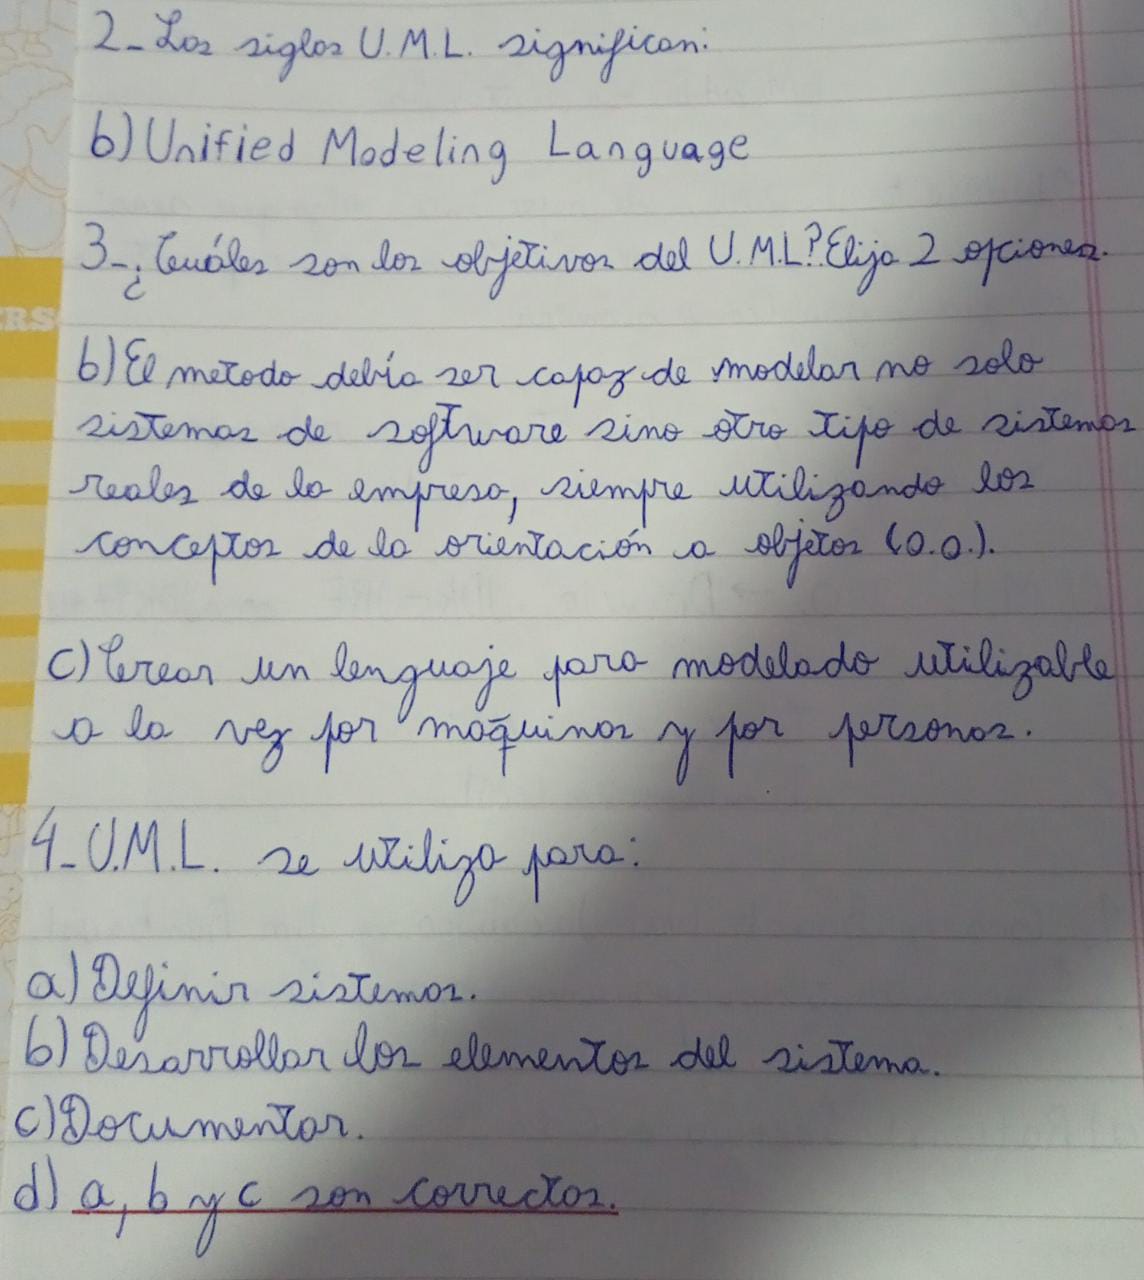 2- Las siglas U.M.L. significan:
b) Unified Modeling Language
3- ¿Cuáles son los objetivos del U.M.L? Elija 2 opciones.
ERS
b) El metodo debía ser capaz de modelar no solo
sistemas de software sino otro tipo de sistemas
reales de la empresa, siempre utilizando los
conceptos de la orientación a objetos (O.O.).
c) Crear un lenguaje para modelado utilizable
a la vez por máquinas y por personas.
4- U.M.L. se utiliza para:
a) Definir sistemas.
b) Desarrollar los elementos del sistema.
c) Documentar.
d) a, b y c son correctas.